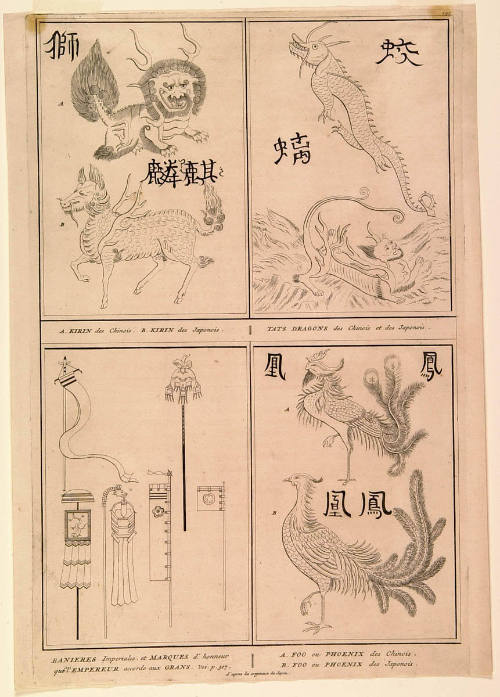 獅
A
麟麒
B
A. KIRIN des Chinois. B. KIRIN des Japonois.
蛟
螭
TATS. DRAGONS des Chinois et des Japonois.
BANIERES Imperiales et MARQUES d'honneur
que l'EMPEREUR accorde aux GRANS. Voi. p. 317.
凰 鳳
A
凰鳳
B
A. FOO ou PHOENIX des Chinois.
B. FOO ou PHOENIX des Japonois.